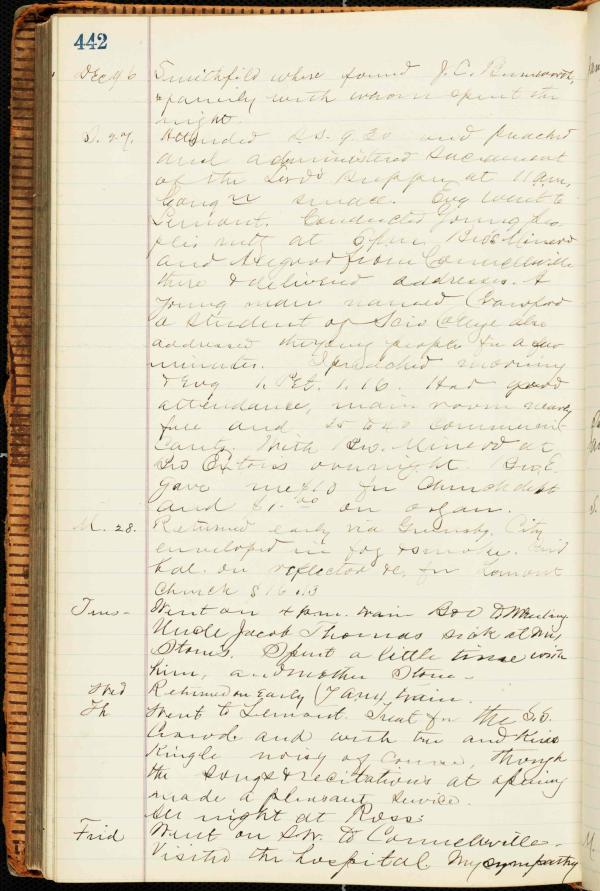 442
Dec 26 Smithfild where found J.C.
& family with whom spent the
night.
S. 27. Attended S.S. 9.30 and preached
and administered Sacrament
of the Lord's Supper at 11 am,
Cong'n small. Evg went to
Lemont. Conducted young peo
ples mtg at 6 pm. Bros Minerd
and from Connellsville
there & delivered addresses. A
young man named Crawford
a student of Scio College also
addressed the young people for a few
minutes. I preached morning
& Evg 1. Pet. 1. 16. Had good
attendance, main room nearly
full and 35 to 40 communi
cants. With Bro. Minerd at
Bro overnight. Bro. E.
gave me $10 for Church debt
and $1.00 on organ.
M. 28. Returned early via Greensbg. City
enveloped in fog & smoke. Paid
bal. on reflector &c. for Lemont
Church $16.13
Tues- Went on 4 pm. train B&O to Wheeling
Uncle Jacob Thomas sick at Mrs
Stones. Spent a little time with
him, and mother Stone-
Wed Returned on Early (7 am) train.
Th Went to Lemont. Treat for the S.S.
Crowde and with tree and Kriss
Kingle noisy of course, though
the songs & recitations at opening
made a pleasant service.
All night at Ross:
Frid Went on S.W. to Connellsville-
Visited the hospital. My sympathy